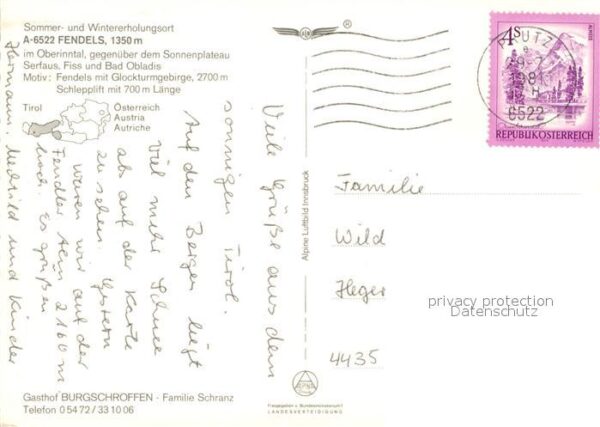 Sommer- und Wintererholungsort
A-6522 FENDELS, 1350 m
im Oberinntal, gegenüber dem Sonnenplateau
Serfaus, Fiss und Bad Obladis
Motiv: Fendels mit Glockturmgebirge, 2700 m
Schlepplift mit 700 m Länge
Tirol
Österreich
Austria
Autriche
Viele Grüße aus dem
sonnigen Tirol.
Auf den Bergen liegt
viel mehr Schnee
als auf der Karte
zu sehen. Gestern
waren wir auf der
Fendler Alm 2160 m
hoch. Es grüßen
Hermann, Mechtild und Kinder
Gasthof BURGSCHROFFEN · Familie Schranz
Telefon 0 54 72 / 33 10 06
Alpine Luftbild Innsbruck
Freigegeben v. Bundesministerium f.
LANDESVERTEIDIGUNG
®
PRUTZ
1981
6522
4S
REPUBLIK ÖSTERREICH
Familie
Wild
Heger
4435
privacy protection
Datenschutz